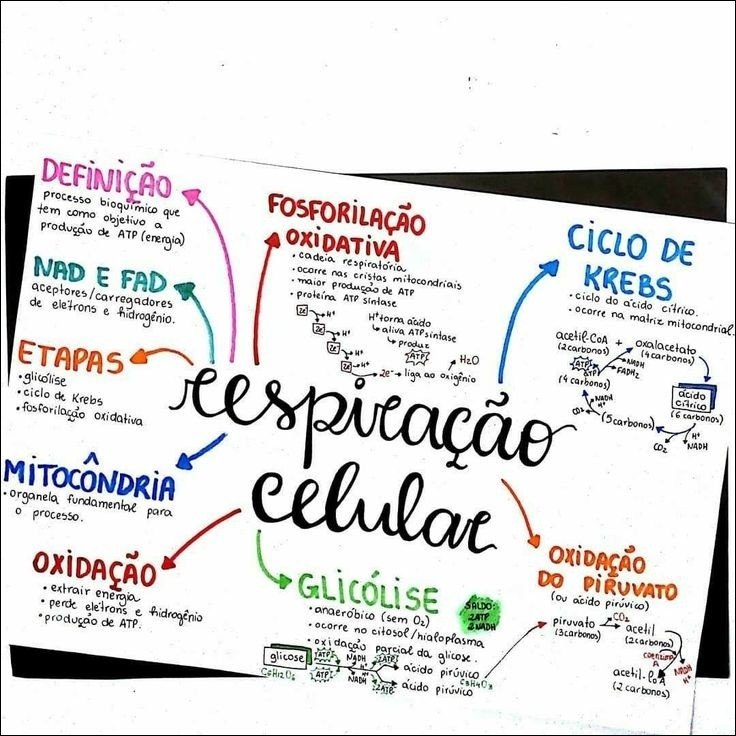 DEFINIÇÃO
processo bioquímico que
tem como objetivo a
produção de ATP (energia)
NAD E FAD
aceptores/carregadores
de elétrons e hidrogênio.
ETAPAS
• glicólise
• ciclo de Krebs
• fosforilação oxidativa
MITOCÔNDRIA
• organela fundamental para
o processo.
OXIDAÇÃO
• extrair energia
• perde elétrons e hidrogênio
• produção de ATP.
FOSFORILAÇÃO
OXIDATIVA
• cadeia respiratória
• ocorre nas cristas mitocondriais
• maior produção de ATP
• proteína ATP síntase
2e⁻ → H⁺
2e⁻ → H⁺
2e⁻ → H⁺
2e⁻ → H⁺
H⁺ torna ácido
↳ ativa ATP síntase
↳ produz
ATP
2e⁻ → liga ao oxigênio
H₂O
respiração
celular
CICLO DE
KREBS
• ciclo do ácido cítrico.
• ocorre na matriz mitocondrial.
acetil-CoA + oxalacetato
(2 carbonos) (4 carbonos)
NADH
FADH₂
ATP
ATP
(4 carbonos)
ácido
cítrico
(6 carbonos)
CO₂
NADH
H⁺
(5 carbonos)
CO₂
H⁺
NADH
GLICÓLISE
• anaeróbico (sem O₂)
• ocorre no citosol/hialoplasma
• oxidação parcial da glicose.
SALDO:
2ATP
2NADH
glicose
C₆H₁₂O₆
ATP
ATP
NADH
H⁺
H⁺
NADH
2ATP
2ATP
ácido pirúvico
C₃H₄O₃
ácido pirúvico
OXIDAÇÃO
DO PIRUVATO
(ou ácido pirúvico)
piruvato
(3 carbonos)
CO₂
acetil
(2 carbonos)
coenzima
A
NADH
H⁺
acetil-CoA
(2 carbonos)